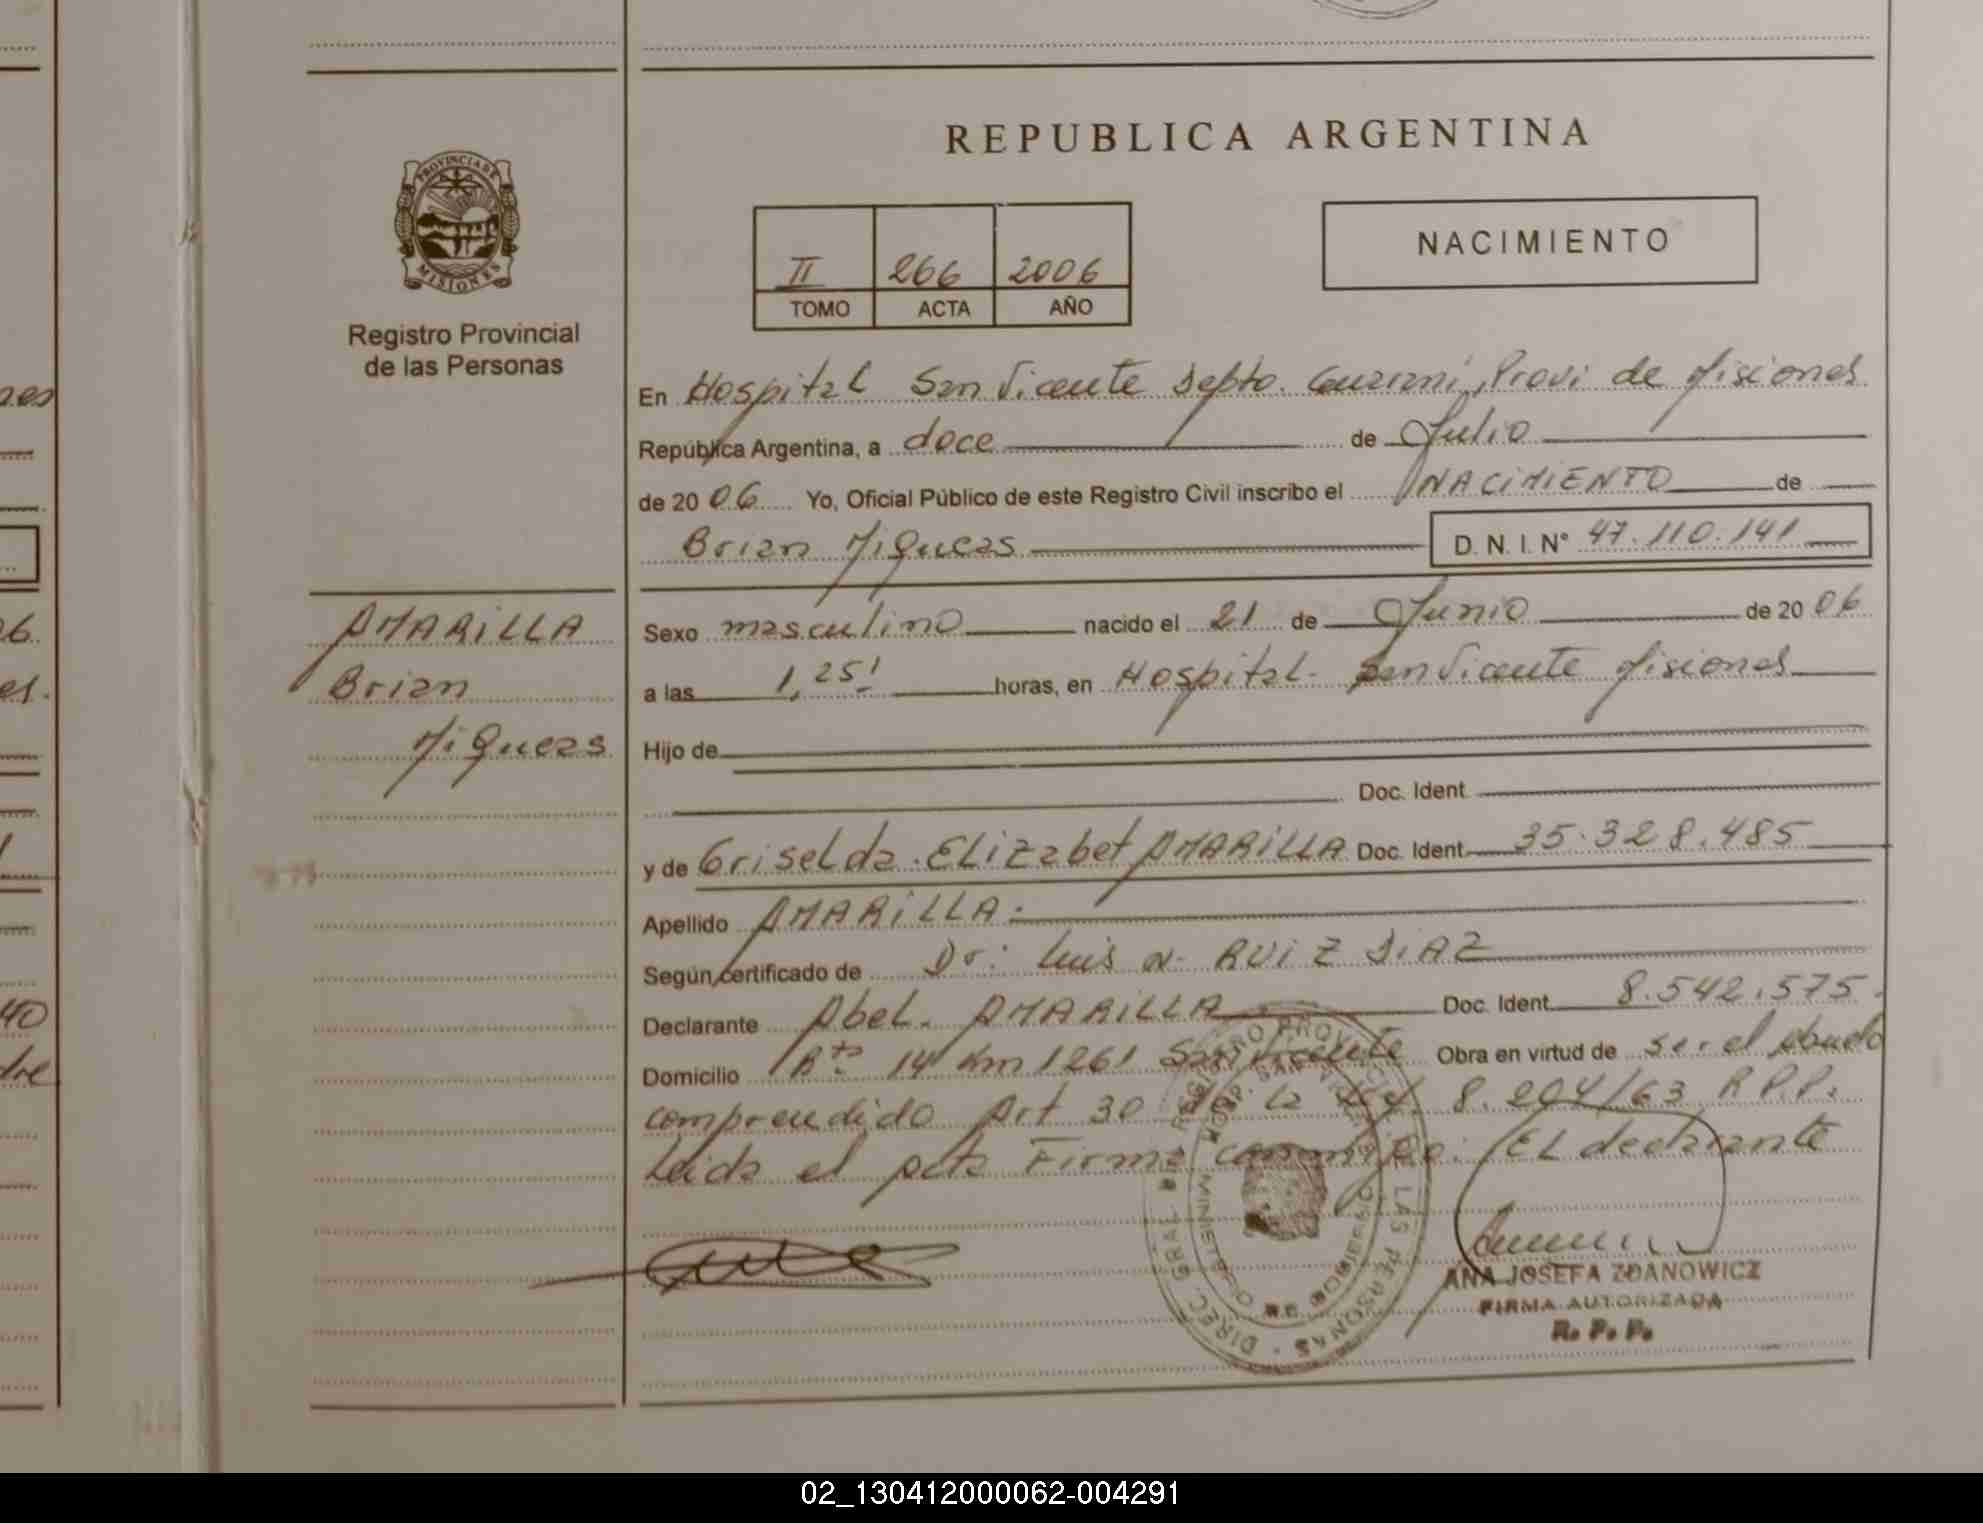 REPUBLICA ARGENTINA
PROVINCIA DE
MISIONES
Registro Provincial
de las Personas
II 266 2006
TOMO ACTA AÑO
NACIMIENTO
En Hospital San Vicente Depto. Guarani, Provi de Misiones
República Argentina, a doce de Julio
de 20 06 Yo, Oficial Público de este Registro Civil inscribo el NACIMIENTO de
Brian Miqueas D. N. I. N° 47.110.141
AMARILLA
Brian
Miqueas
Sexo masculino nacido el 21 de Junio de 20 06
a las 1,25' horas, en Hospital San Vicente Misiones
Hijo de
Doc. Ident.
y de Griselda Elizabet AMARILLA Doc. Ident. 35.328.485
Apellido AMARILLA.
Según certificado de Dr: Luis A. RUIZ DIAZ
Declarante Abel. AMARILLA Doc. Ident. 8.542.575.
Domicilio Rta 14 Km 1261 San Vicente Obra en virtud de ser el abuelo
comprendido Art 30 de la Ley. 8.204/63 R.P.P.
Leida el acta Firma conmigo. EL declarante
DIREC. GRAL. DE REGISTRO PROVINCIAL DE LAS PERSONAS
HOSP. SAN VICENTE
MINISTERIO DE GOBIERNO
ANA JOSEFA ZDANOWICZ
FIRMA AUTORIZADA
R. P. P.
02_130412000062-004291